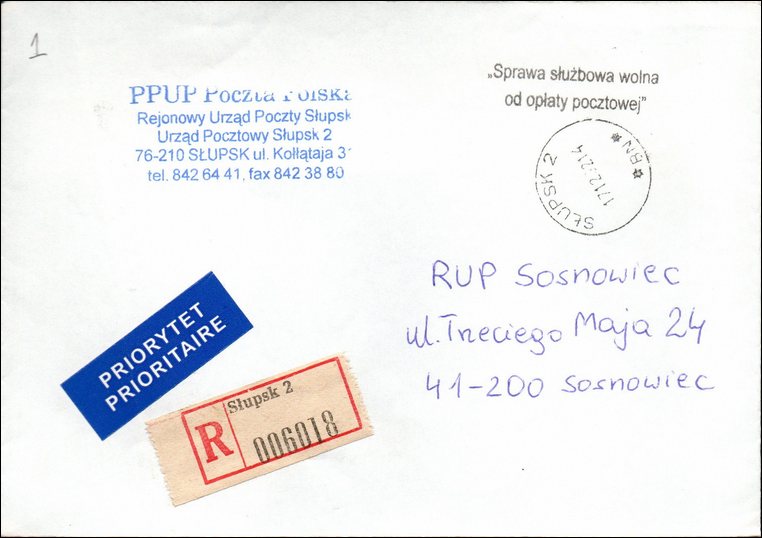 1
PPUP Poczta Polska
Rejonowy Urząd Poczty Słupsk
Urząd Pocztowy Słupsk 2
76-210 SŁUPSK ul. Kołłątaja 31
tel. 842 64 41, fax 842 38 80
„Sprawa służbowa wolna
od opłaty pocztowej”
SŁUPSK 2
* BN *
RUP Sosnowiec
ul. Trzeciego Maja 24
41-200 Sosnowiec
PRIORYTET
PRIORITAIRE
Słupsk 2
R
006018